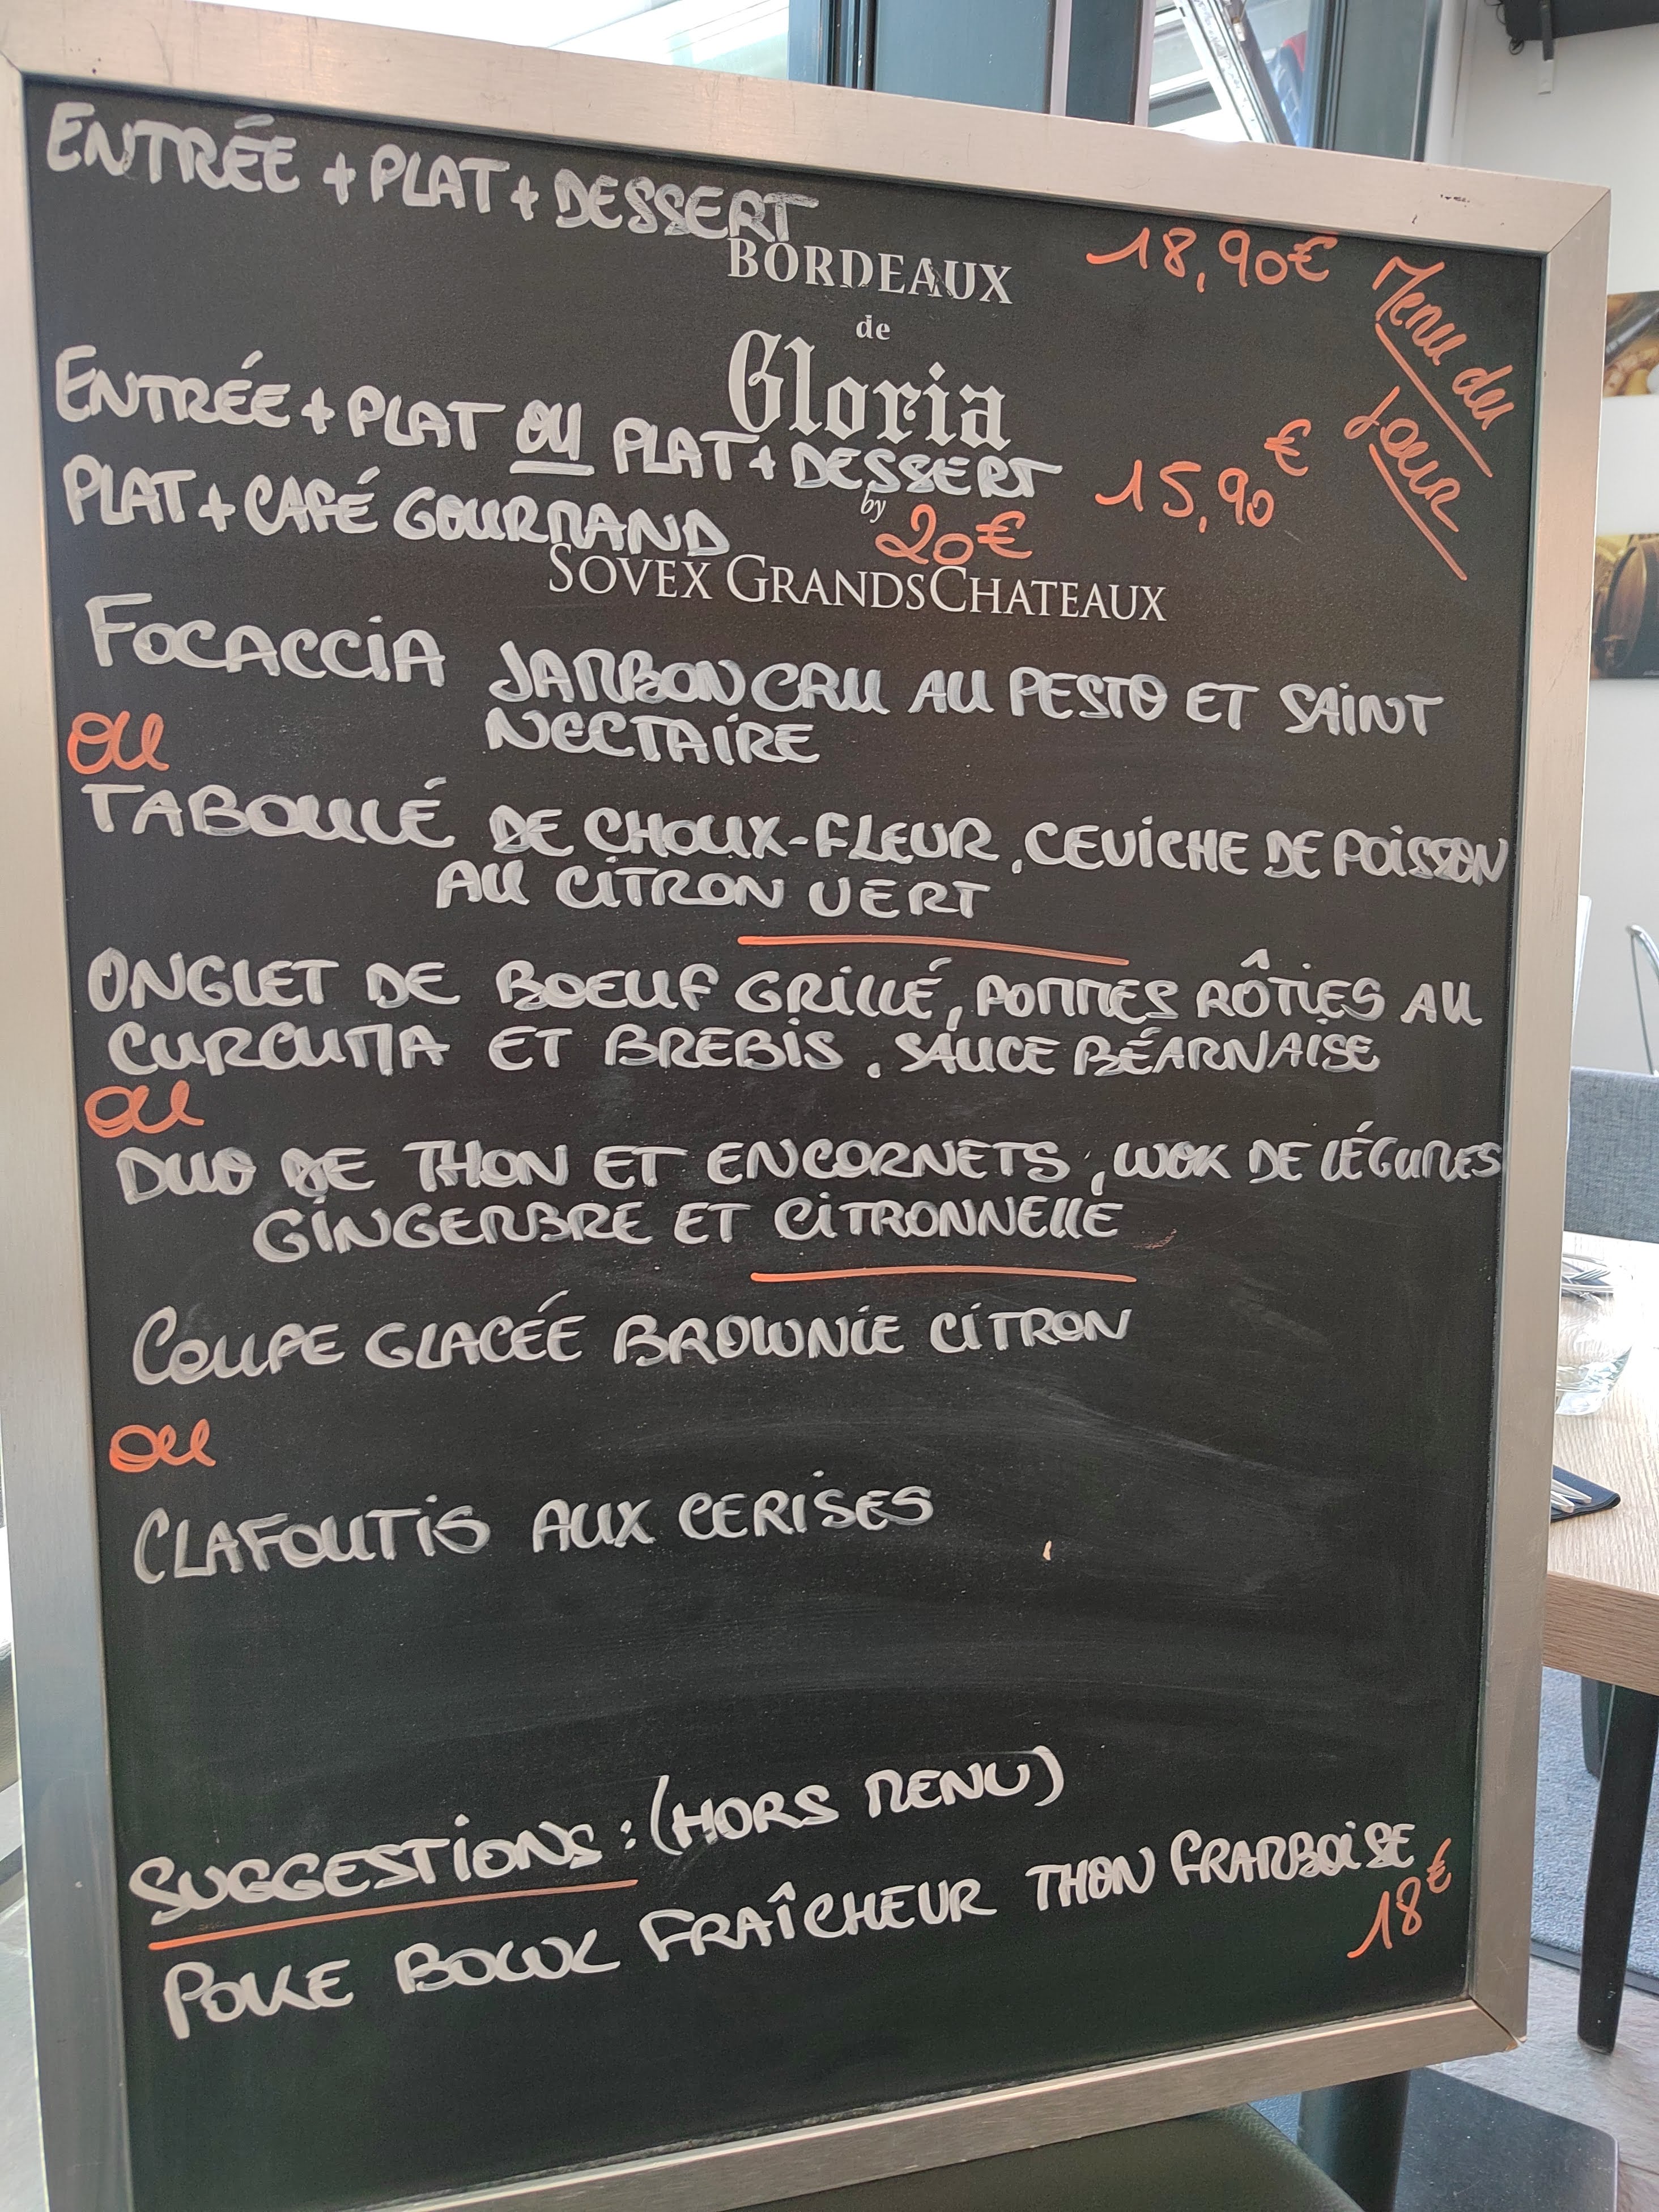 ENTRÉE + PLAT + DESSERT 18,90€
BORDEAUX
de
Gloria
Menu du
Jour
ENTRÉE + PLAT OU PLAT + DESSERT 15,90€
PLAT + CAFÉ GOURMAND 20€
by
SOVEX GRANDSCHATEAUX
FOCACCIA JAMBON CRU AU PESTO ET SAINT
NECTAIRE
OU
TABOULÉ DE CHOUX-FLEUR, CEVICHE DE POISSON
AU CITRON VERT
ONGLET DE BOEUF GRILLÉ, POMMES RÔTIES AU
CURCUMA ET BREBIS. SAUCE BÉARNAISE
OU
DUO DE THON ET ENCORNETS, WOK DE LÉGUMES
GINGEMBRE ET CITRONNELLE
COUPE GLACÉE BROWNIE CITRON
OU
CLAFOUTIS AUX CERISES
SUGGESTIONS : (HORS MENU)
POKE BOWL FRAÎCHEUR THON FRAMBOISE
18€